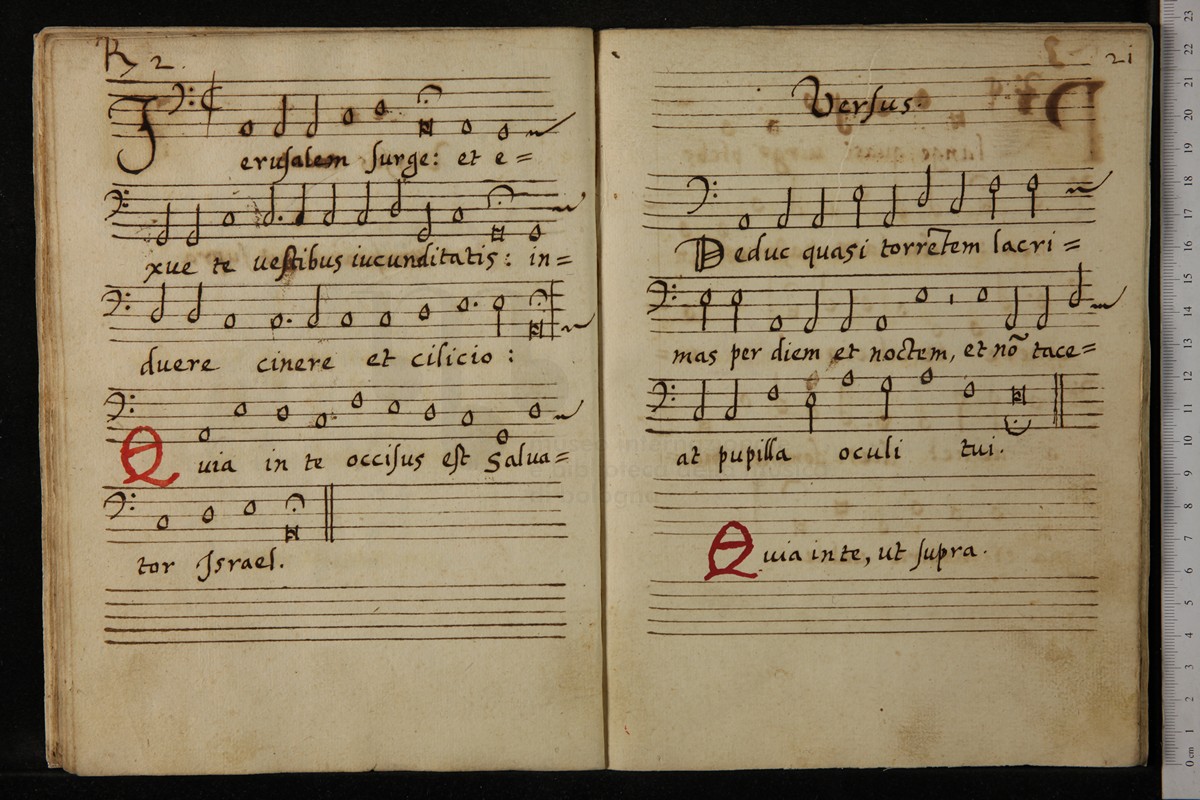 R 2.
Jerusalem surge: et e=
xue te vestibus iucunditatis: in=
duere cinere et cilicio:
Quia in te occisus est Salua=
tor Israel.
21
Versus.
Deduc quasi torrẽtem lacri=
mas per diem et noctem, et nõ tace=
at pupilla oculi tui.
Quia in te, ut supra.
0 cm 1 2 3 4 5 6 7 8 9 10 11 12 13 14 15 16 17 18 19 20 21 22 23